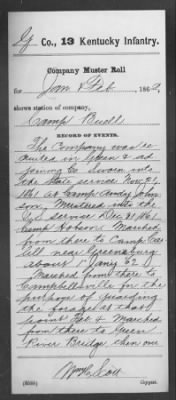 G Co., 13 Kentucky Infantry.
Company Muster Roll
for Jan & Feb, 1862,
shows station of company,
Camp Buell
RECORD OF EVENTS.
The Company was re
cruited in Green & ad
joining Co. Sworn into
the State service Nov 21,
1861 at Camp Andy John
son. Mustered into the
U.S. service Dec 31, 1861
Camp Hobson. Marched
from there to Camp
all near Greensburg
about 1 Jany 62.
Marched from there to
Campbellsville for the
purpose of guarding
the forage at that
point Feb & Marched
from there to Green
River Bridge, then one
Wm B Scott
Copyist.